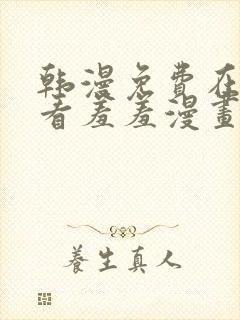 韩漫免費在
看羞羞漫畫
養生真人